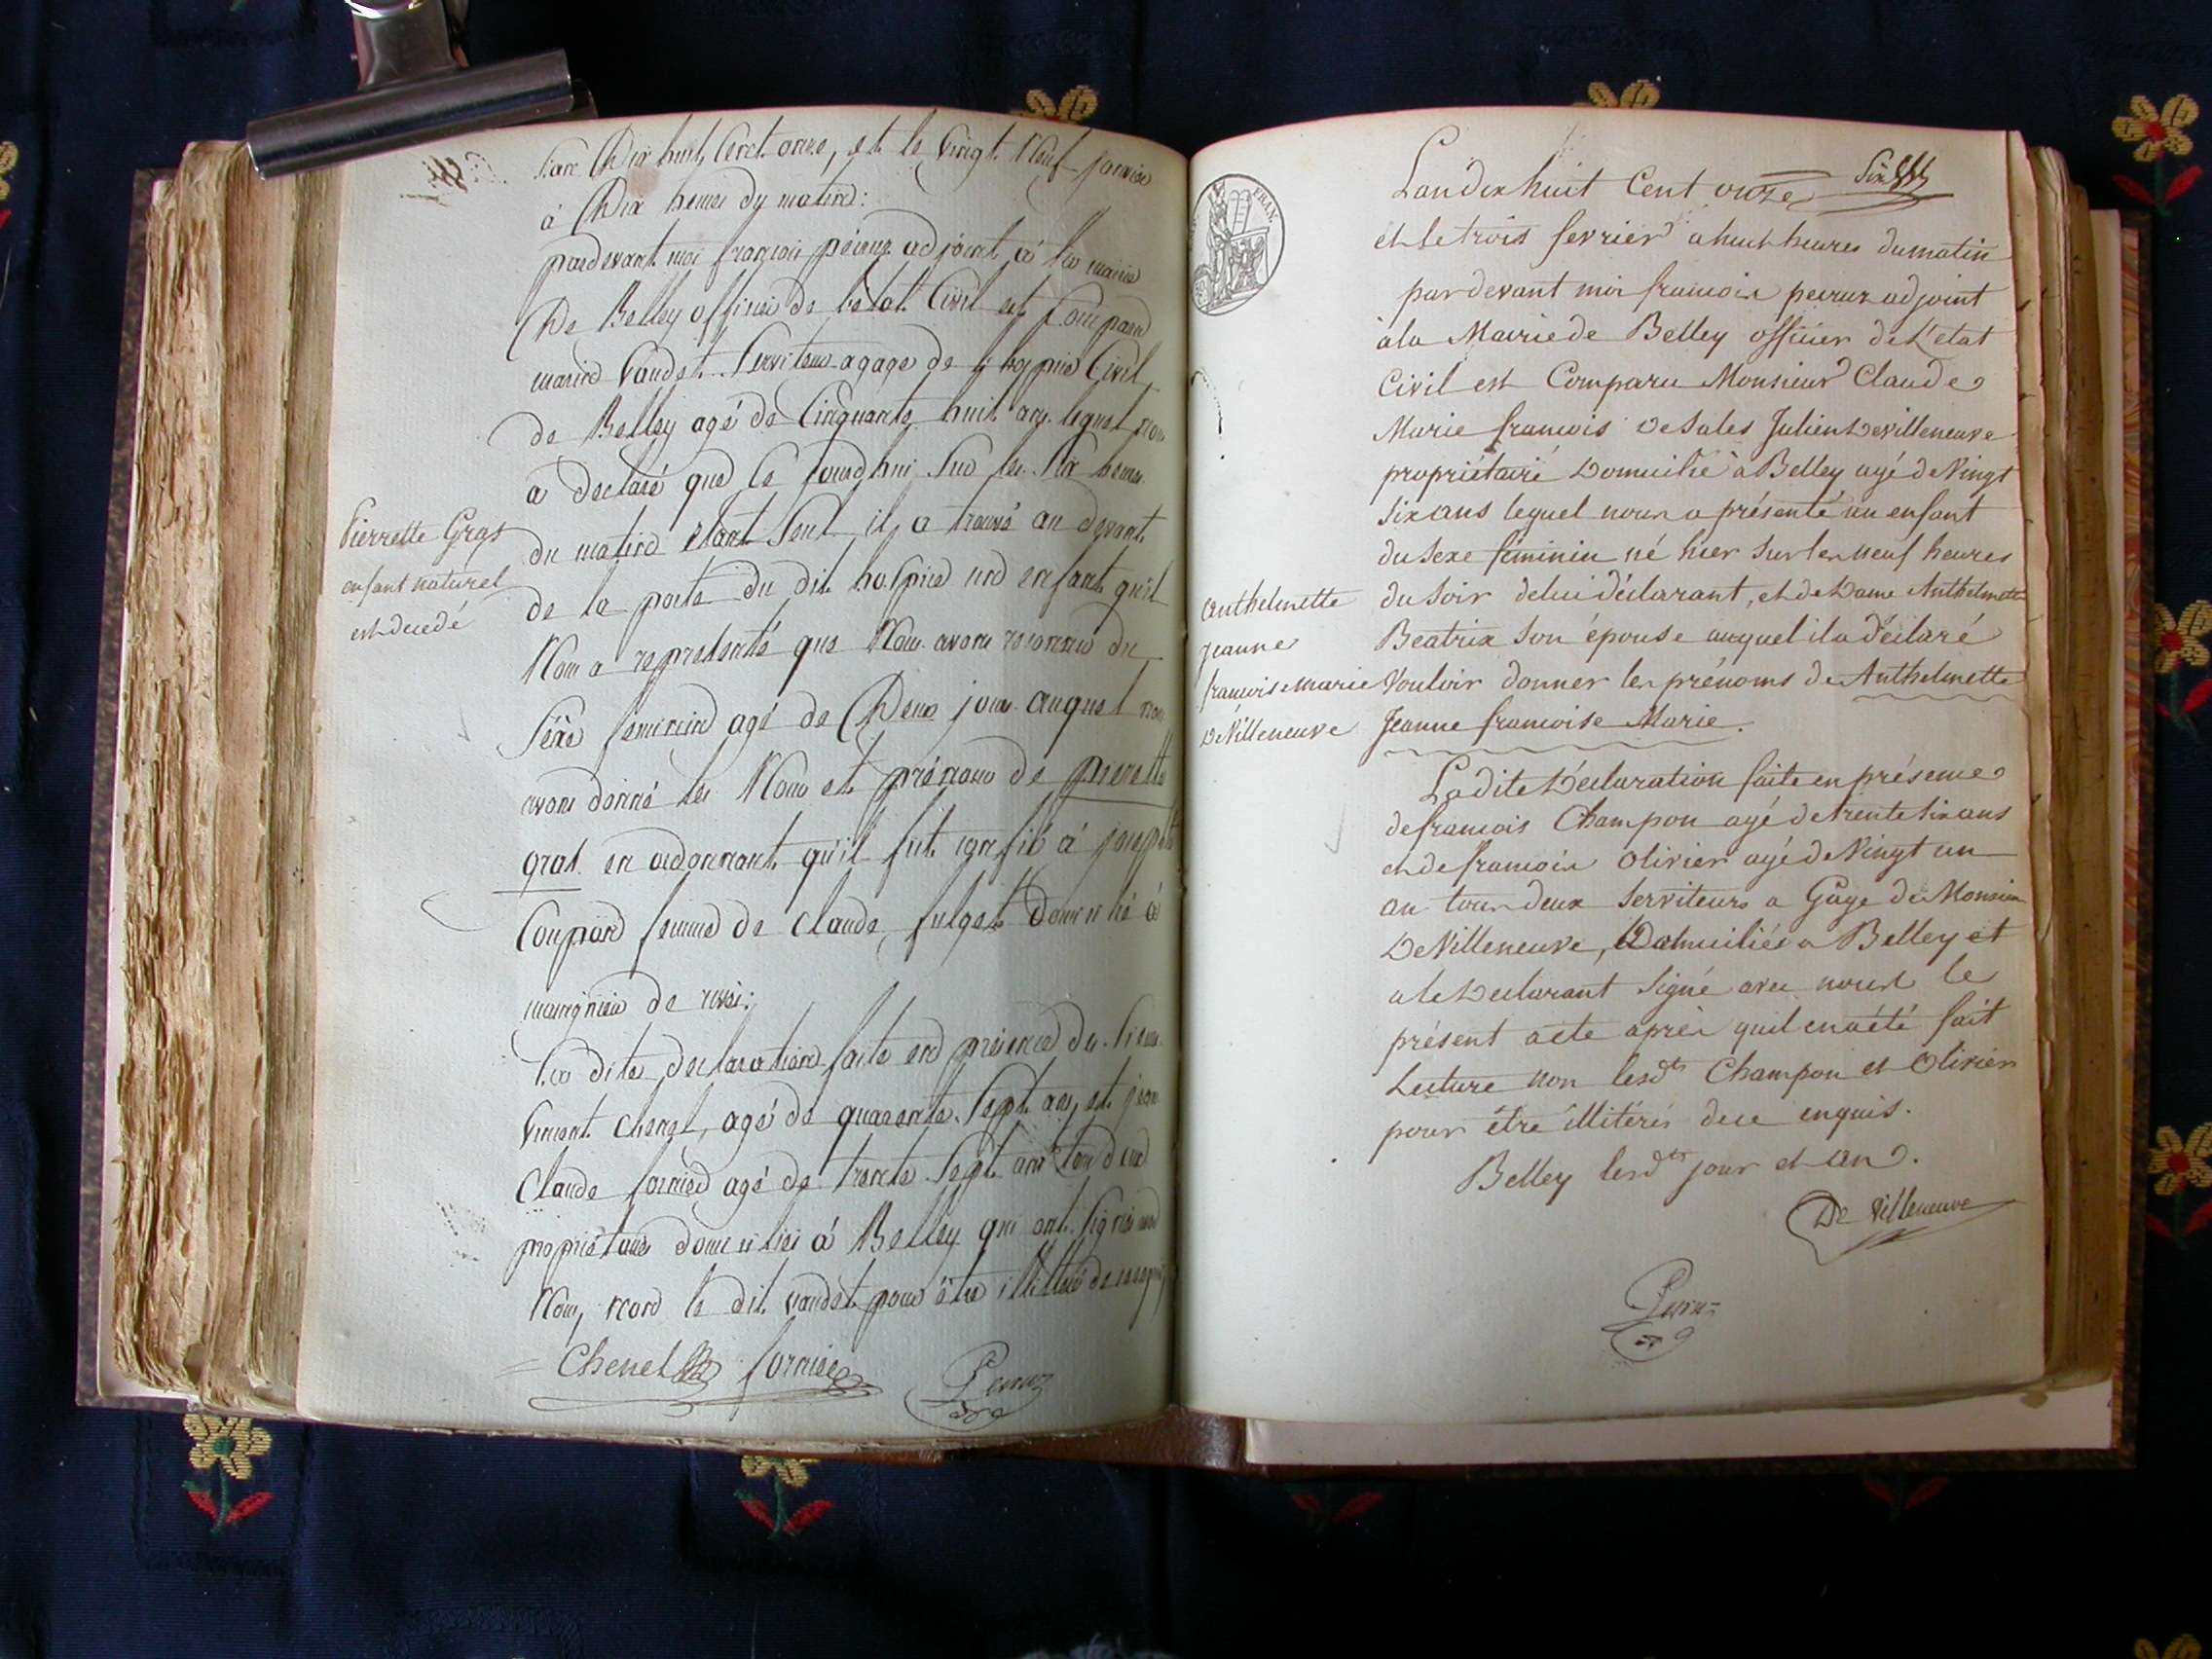 Lan Dix huit Cent onze, et le Vingt Neuf janvier
à Dix heures du matin:
pardevant moi françois peiruz adjoint à la mairie
De Belley officier de l'etat Civil est Comparu
Vaudet Serviteur a gage de l'hospice Civil
de Belley agé de Cinquante huit ans lequel nous
a declaré que ce jourdhui sur les six heures
du matin etant seul il a trouvé au devant
de la porte du dit hospice un enfant qu'il
Nous a representé que Nous avons reconnu du
Séxe feminin agé de Deux jours auquel nous
avons donné les Nom et prénoms de pierrette
gras en ordonnant qu'il fut confié à
femme de Claude fulget Domicilié à

La dite declaration faite en présence du sieur
Vincent Chenel, agé de quarante Sept ans, et jean
Claude fornier agé de trente Sept ans tou deux
propriétaires domiciliés à Belley qui ont Signés avec
Nous, non le dit vaudet pour être illitteré de ce enquis
Chenel fornier Peiruz
Pierrette Gras
enfant naturel
est decedé
FRAN.
Six
Lan dix huit Cent onze
et le trois fevrier a huit heures du matin
par devant moi francois peiruz adjoint
à la Mairie de Belley officier de L'etat
Civil est Comparu Monsieur Claude
Marie francois De Sales Julien De villeneuve
propriétaire Domicilié à Belley agé de Vingt
Six ans lequel nous a présenté un enfant
du Sexe féminin né hier sur les neuf heures
du Soir de lui déclarant, et de Dame Anthelmette
Beatrix Son épouse auquel il a déclaré
Vouloir donner les prénoms de Anthelmette
Jeanne francoise Marie.
Anthelmette
Jeanne
francoise Marie
De Villeneuve
La dite Déclaration faite en présence
de francois Champon agé de trente six ans
et de francois Olivier agé de Vingt un
an tous deux Serviteurs a Gage de Monsieur
De Villeneuve, Domiciliés a Belley et
a le Declarant Signé avec nous le
présent acte après quil en a été fait
Lecture non lesdts Champon et Olivier
pour être illitérés de ce enquis.
Belley lesdts jour et an.
De Villeneuve
Peiruz